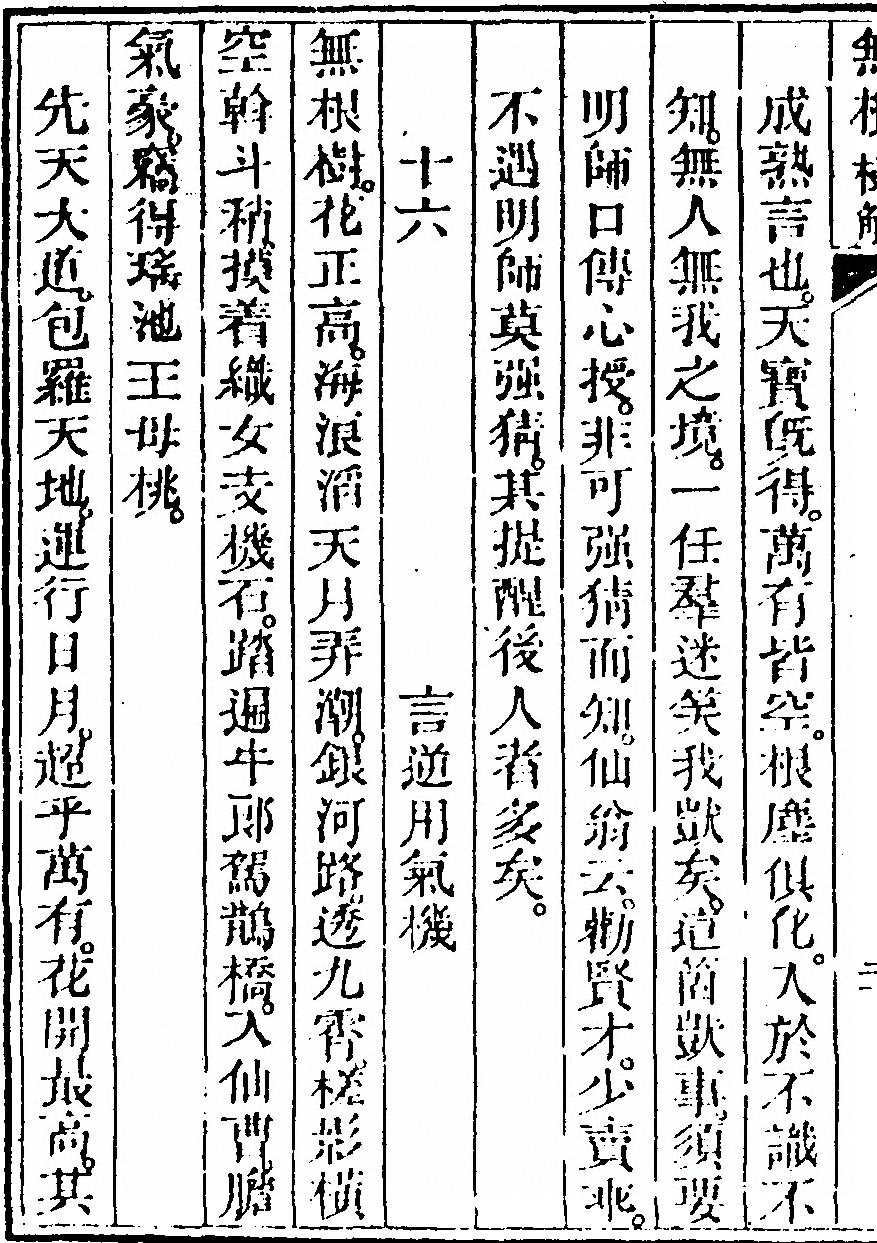 無根樹解
成熟言也。天寶既得。萬有皆空。根塵俱化。入於不識不
知。無人無我之境。一任羣迷笑我獃矣。這箇獃事。須要
明師口傳心授。非可强猜而知。仙翁云。勸賢才。少賣乖。
不遇明師莫强猜。其提醒後人者多矣。
十六　言逆用氣機
無根樹。花正高。海浪滔天月弄潮。銀河路。透九霄。槎影橫
空斡斗稍。摸着織女支機石。踏遍牛郎駕鵲橋。入仙曹。膽
氣豪。竊得瑤池王母桃。
先天大道。包羅天地。運行日月。超乎萬有。花開最高。其